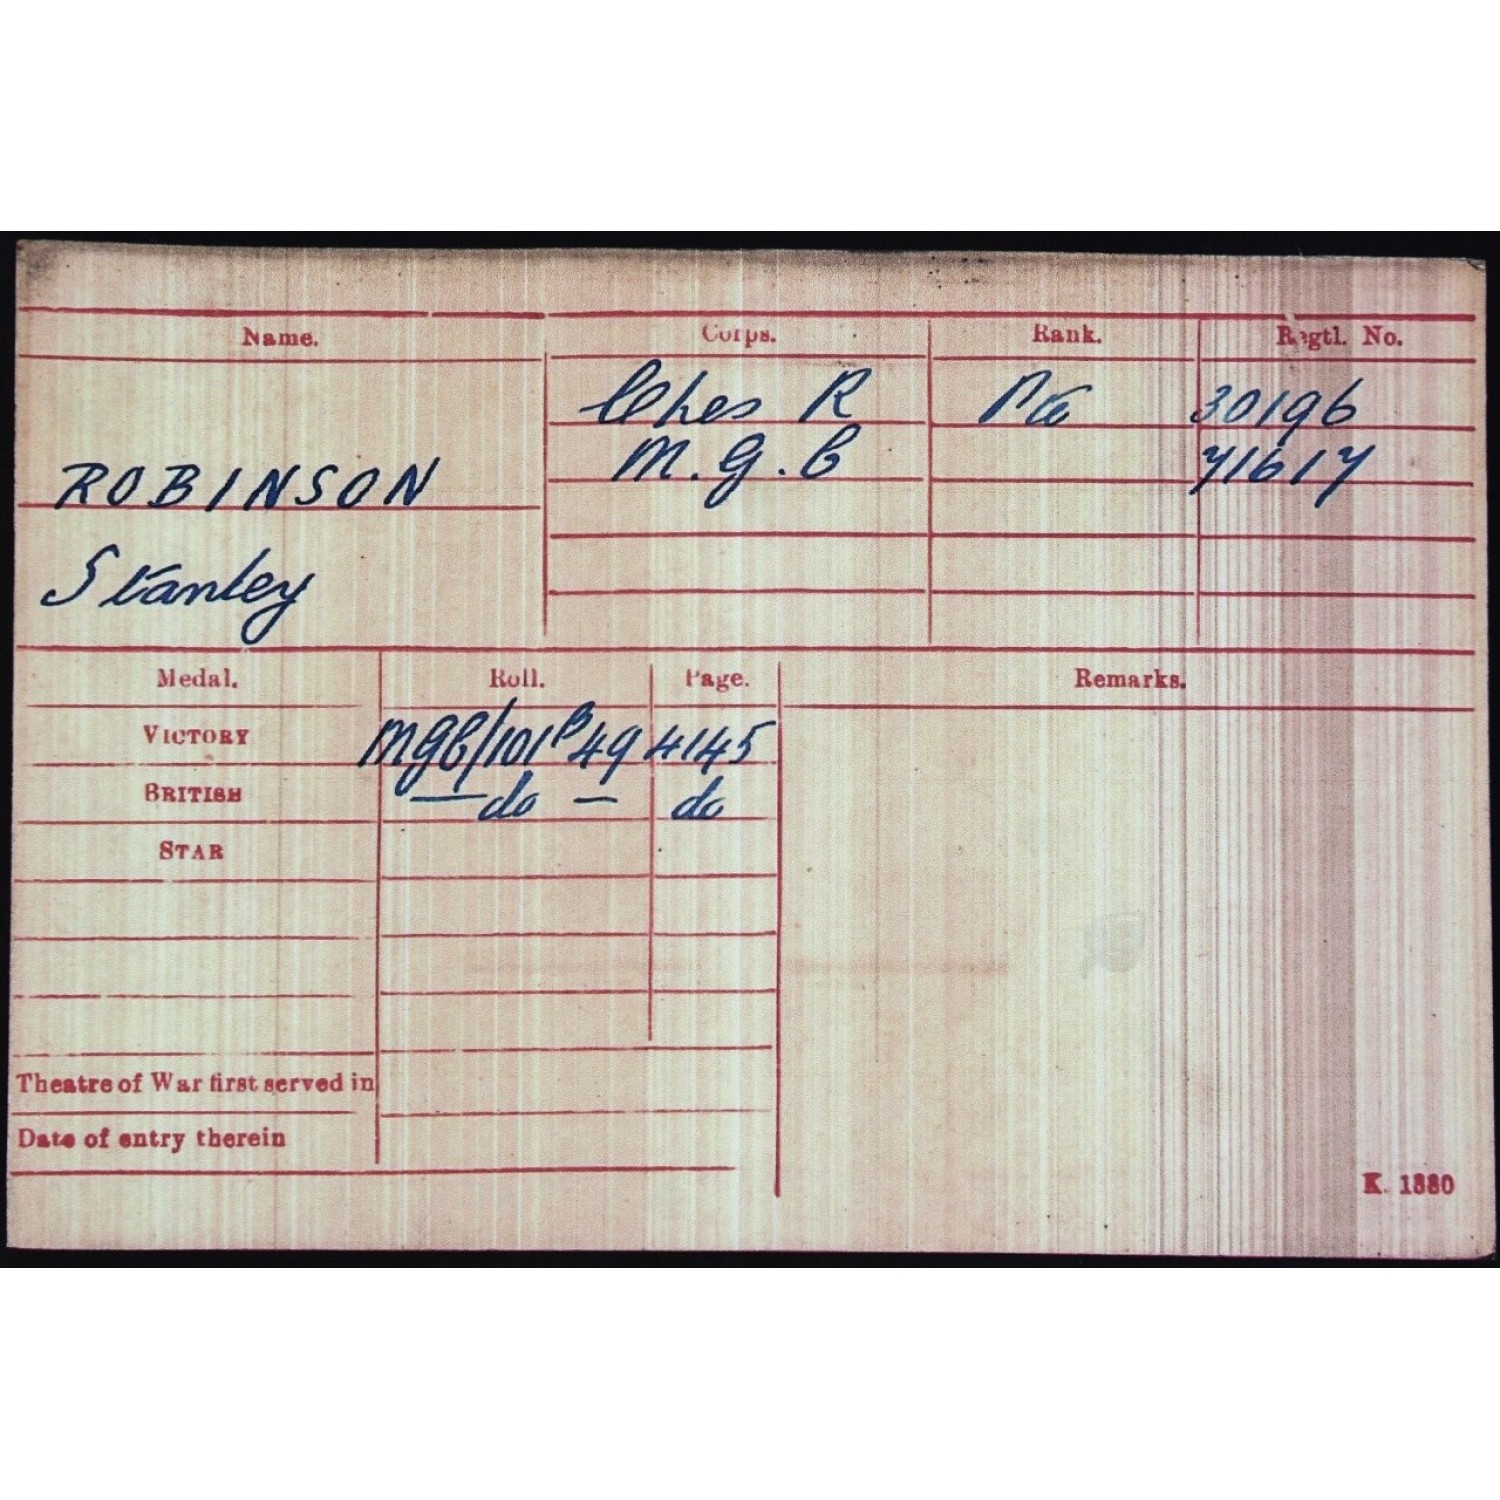 Name. Corps. Rank. Regtl. No.
Ches R Pte 30196
ROBINSON M.G.C 71617
Stanley
Medal. Roll. Page. Remarks.
VICTORY MGC/101B49 4145
BRITISH — do — do
STAR
Theatre of War first served in
Date of entry therein
K. 1380